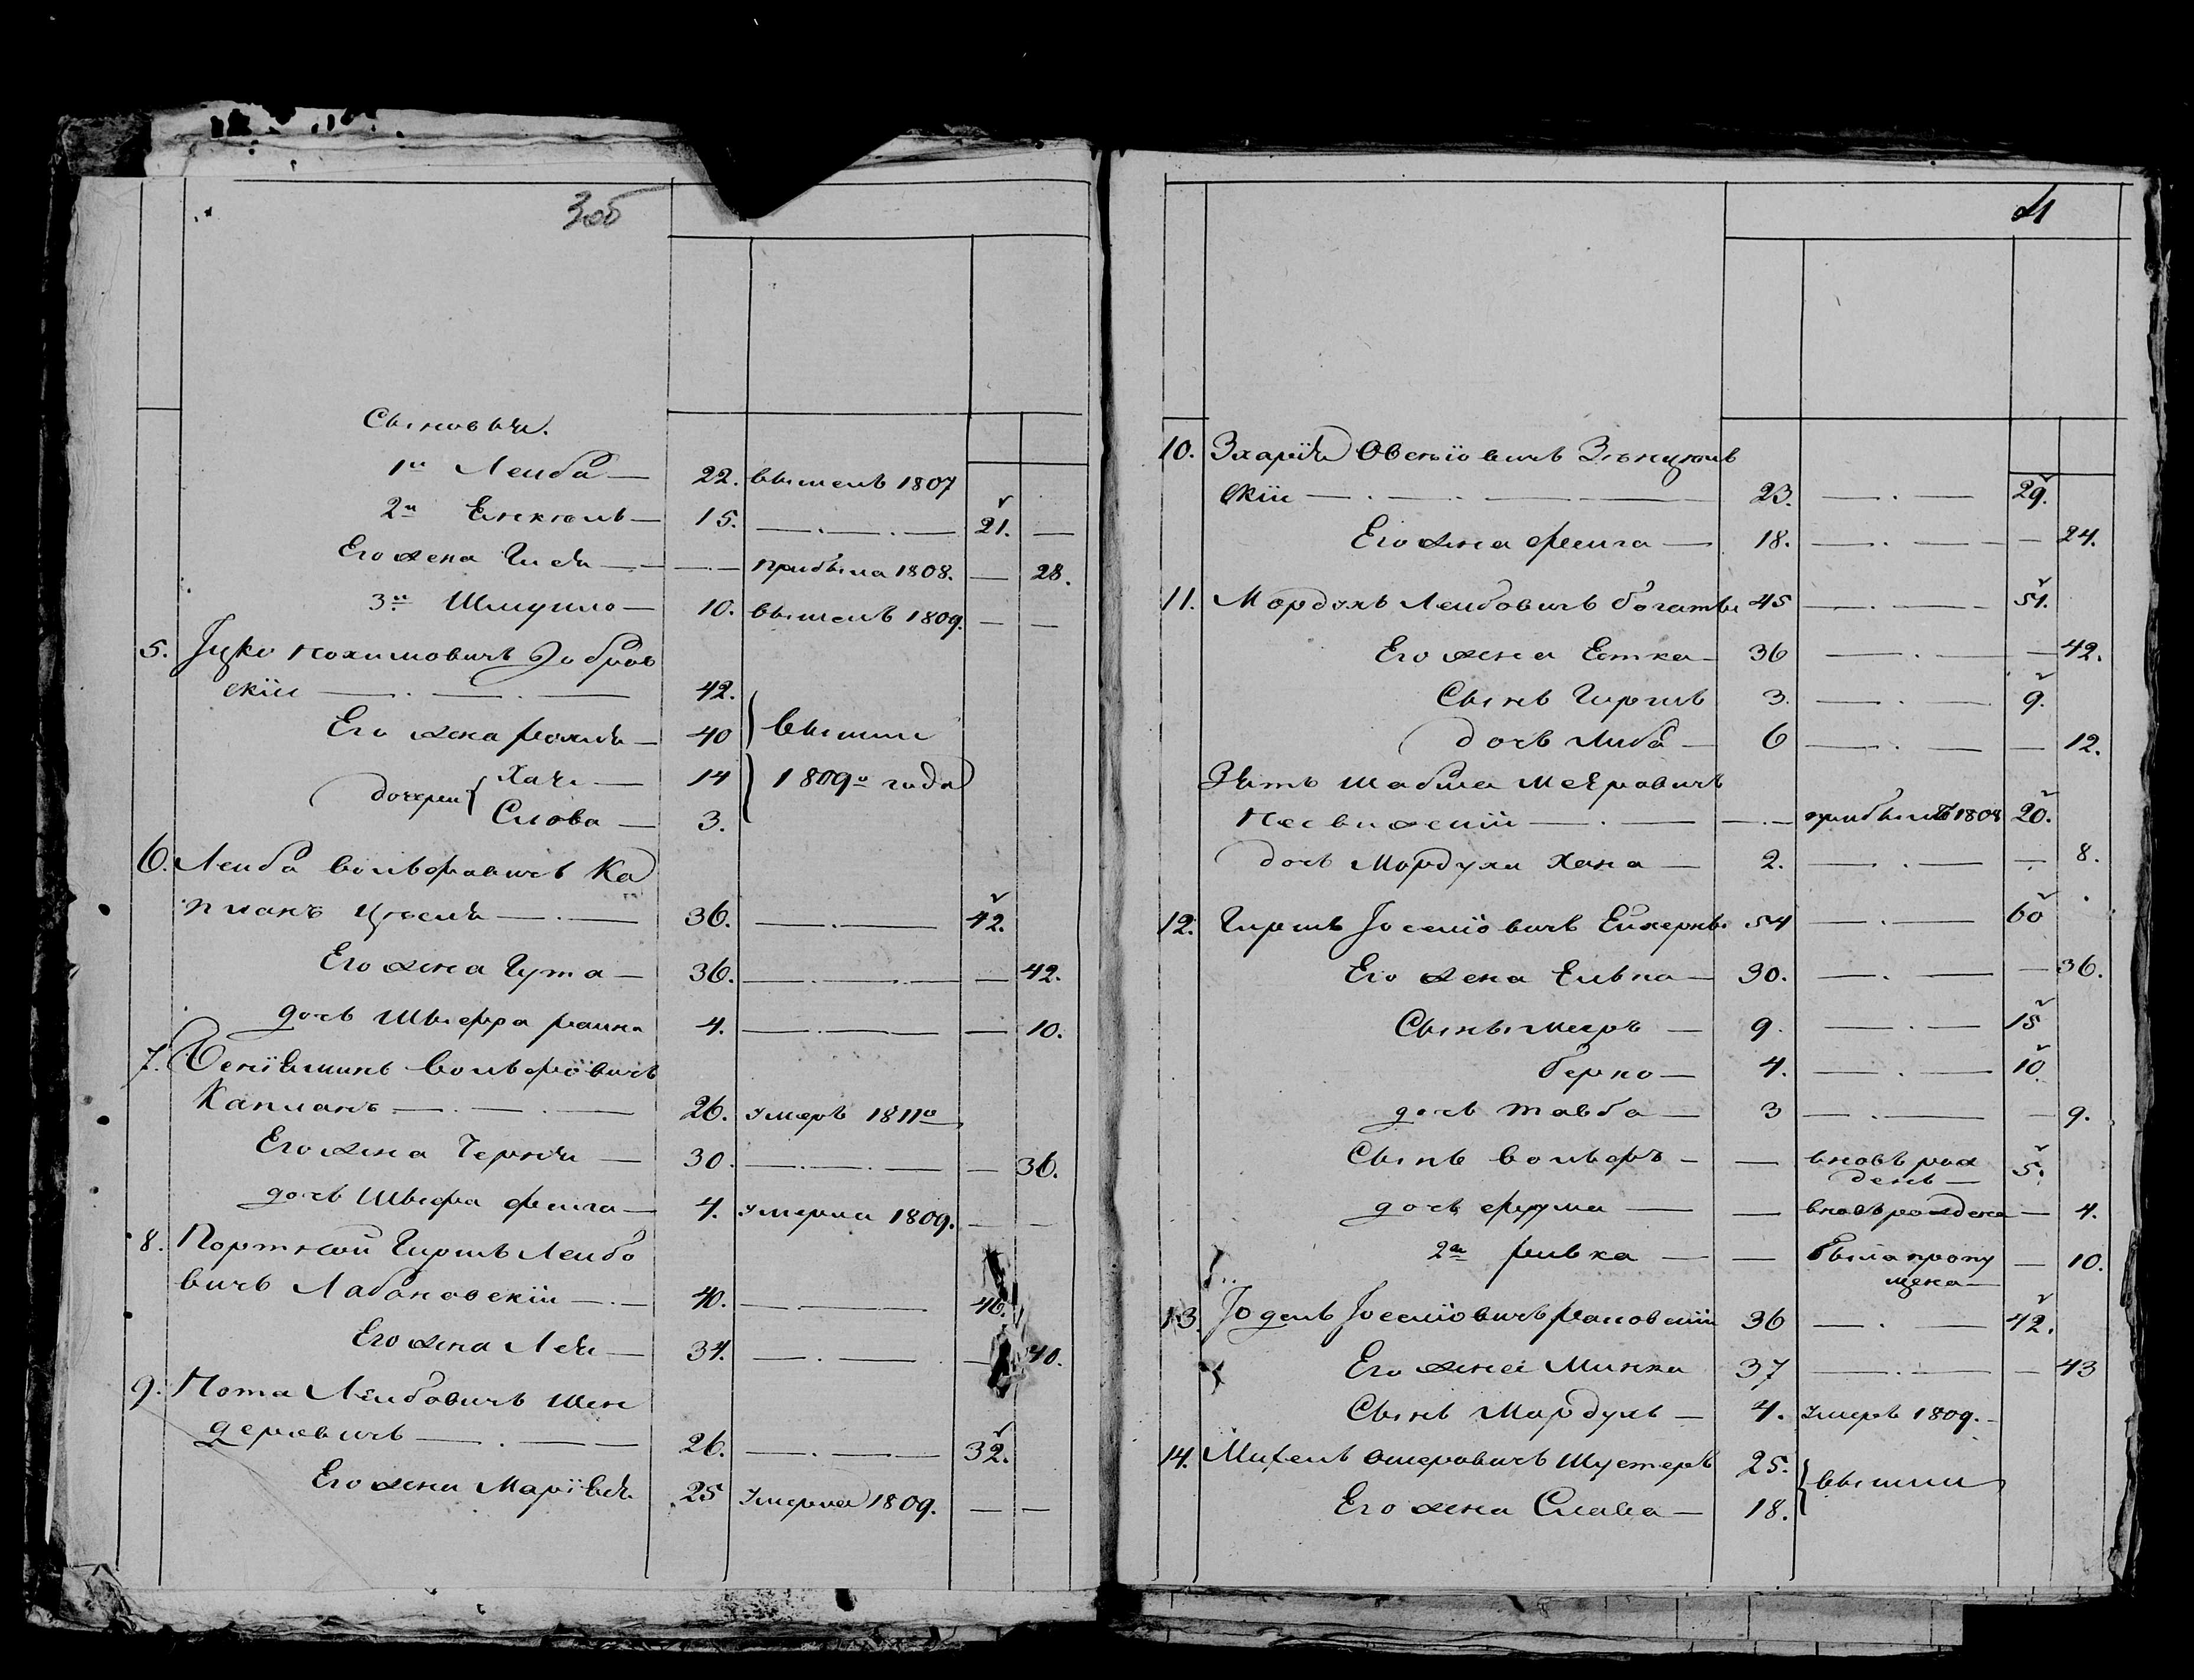 3об
Сыновья.
1й Лейба — 22. вышелъ 1807
2й Енкюль — 15. — . — . — 21. —
Его жена Гися — — . — прибыла 1808. — 28.
3й Шмуило — 10. вышелъ 1809. — —
5. Іцко Нохимовичъ Добров
скіи — . — . — 42.
Его жена — 40 } вышли
дочери { Хая — 14 } 1809го года
Слова — 3.
6. Лейба Вольфовичъ Ка
планъ — . — 36. — . — 42.
Его жена Гута — 36. — . — . — — 42.
дочь Швефра 4. — . — . — — 10.
7. Беніяминъ Вольфовичъ
Капланъ — . — . — 26. умеръ 1811го
Его жена Черня — 30. — . — . — — 36.
дочь Швефра Фейга — 4. умерла 1809. — —
8. Портной Гиршъ Лейбо
вичъ Лабановскіи — . — 40. — . — 46.
Его жена Лея — 34. — . — . — 40.
9. Нота Лейбовичъ Шен
деревичъ — . — 26. — . — . — 32.
Его жена 25 умерла 1809. — —
4
10. Захарія Овсѣіовичъ
скіи — . — . — 23. — . — 29.
Его жена Фейга — 18. — . — — — 24.
11. Мордухъ Лейбовичъ Богаты 45 — . — — 51.
Его жена Етка — 36 — . — — 42.
Сынъ Гиршъ 3. — . — 9.
дочь Либа — 6 — . — — 12.
Зять Шабша Меяровичъ
Несвижскіи — . — — . — прибылъ 1808 20.
дочь Мордуха Хана — 2. — . — — 8.
12. Гиршъ Іоселіовичъ 54 — . — 60
Его жена Елька — 30. — . — — 36.
Сынъ Мееръ — 9. — . — 15
Берко — 4. — . — 10.
дочь Тавба — 3 — . — — 9.
Сынъ Вольфъ — — вновь рож
денъ — 5.
дочь Фрума — — вновь рождена — 4.
2я Ривка — — была пропу
щена — — 10.
13. Іоделъ Іоселіовичъ 36 — . — 42.
Его жена Минка 37 — . — — 43
Сынъ Мордухъ — 4. умеръ 1809. —
14. Михель Ошеровичъ Шустеръ 25. } вышли
Его жена Слава — 18.